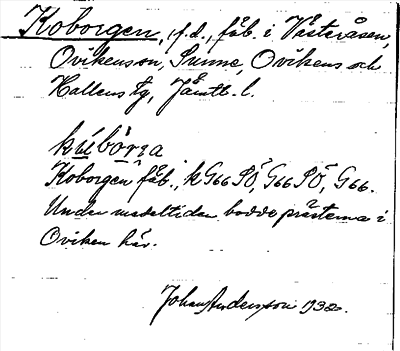 Koborgen, f.d., fäb. i Västeråsen,
Ovikens sn, Sunne, Ovikens och
Hallens tg, Jämtl. l.
kúbòrga
Koborgen fäb., k G66 SÖ, G66 SÖ, G66.
Under medeltiden bodde prästerna i
Oviken här.
Johan Andersson 1932.